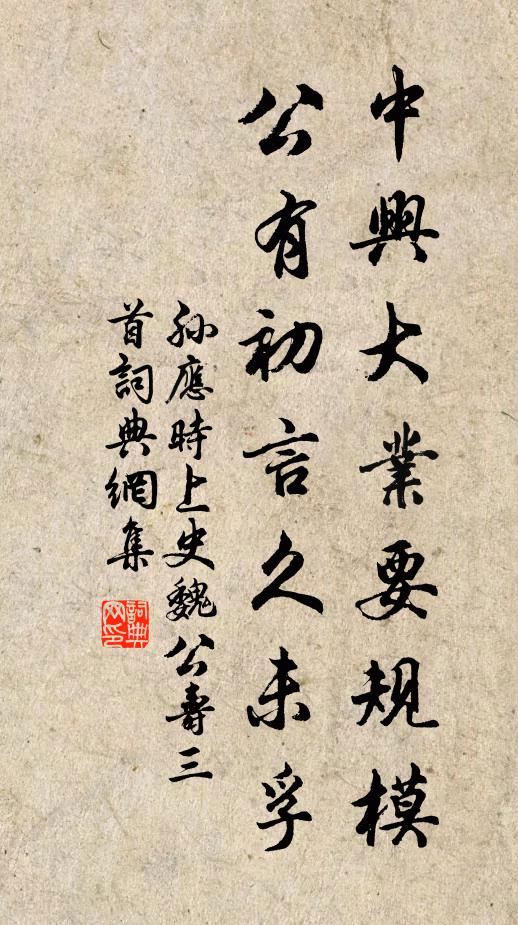 中興大業要規模
公有初言久未孚
孫應時上史魏公壽三
首詞典網集
詞典
网印